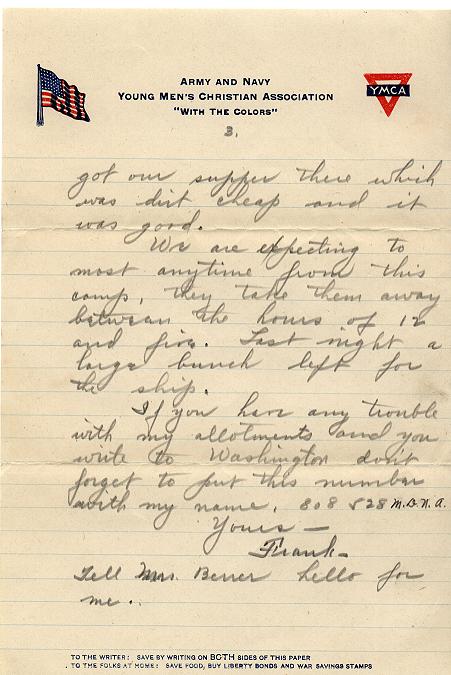 ARMY AND NAVY
YOUNG MEN'S CHRISTIAN ASSOCIATION
"WITH THE COLORS"
YMCA
3.
got our supper there which
was dirt cheap and it
was good.
We are expecting to
most anytime from this
camp, they take them away
between the hours of 12
and five. Last night a
large bunch left for
the ship.
If you have any trouble
with my allotments and you
write to Washington don't
forget to put this number
with my name. 808 528 M.D.N.A.
Yours —
Frank-
Tell Mrs. Berrer hello for
me..
TO THE WRITER: SAVE BY WRITING ON BOTH SIDES OF THIS PAPER
TO THE FOLKS AT HOME: SAVE FOOD, BUY LIBERTY BONDS AND WAR SAVINGS STAMPS